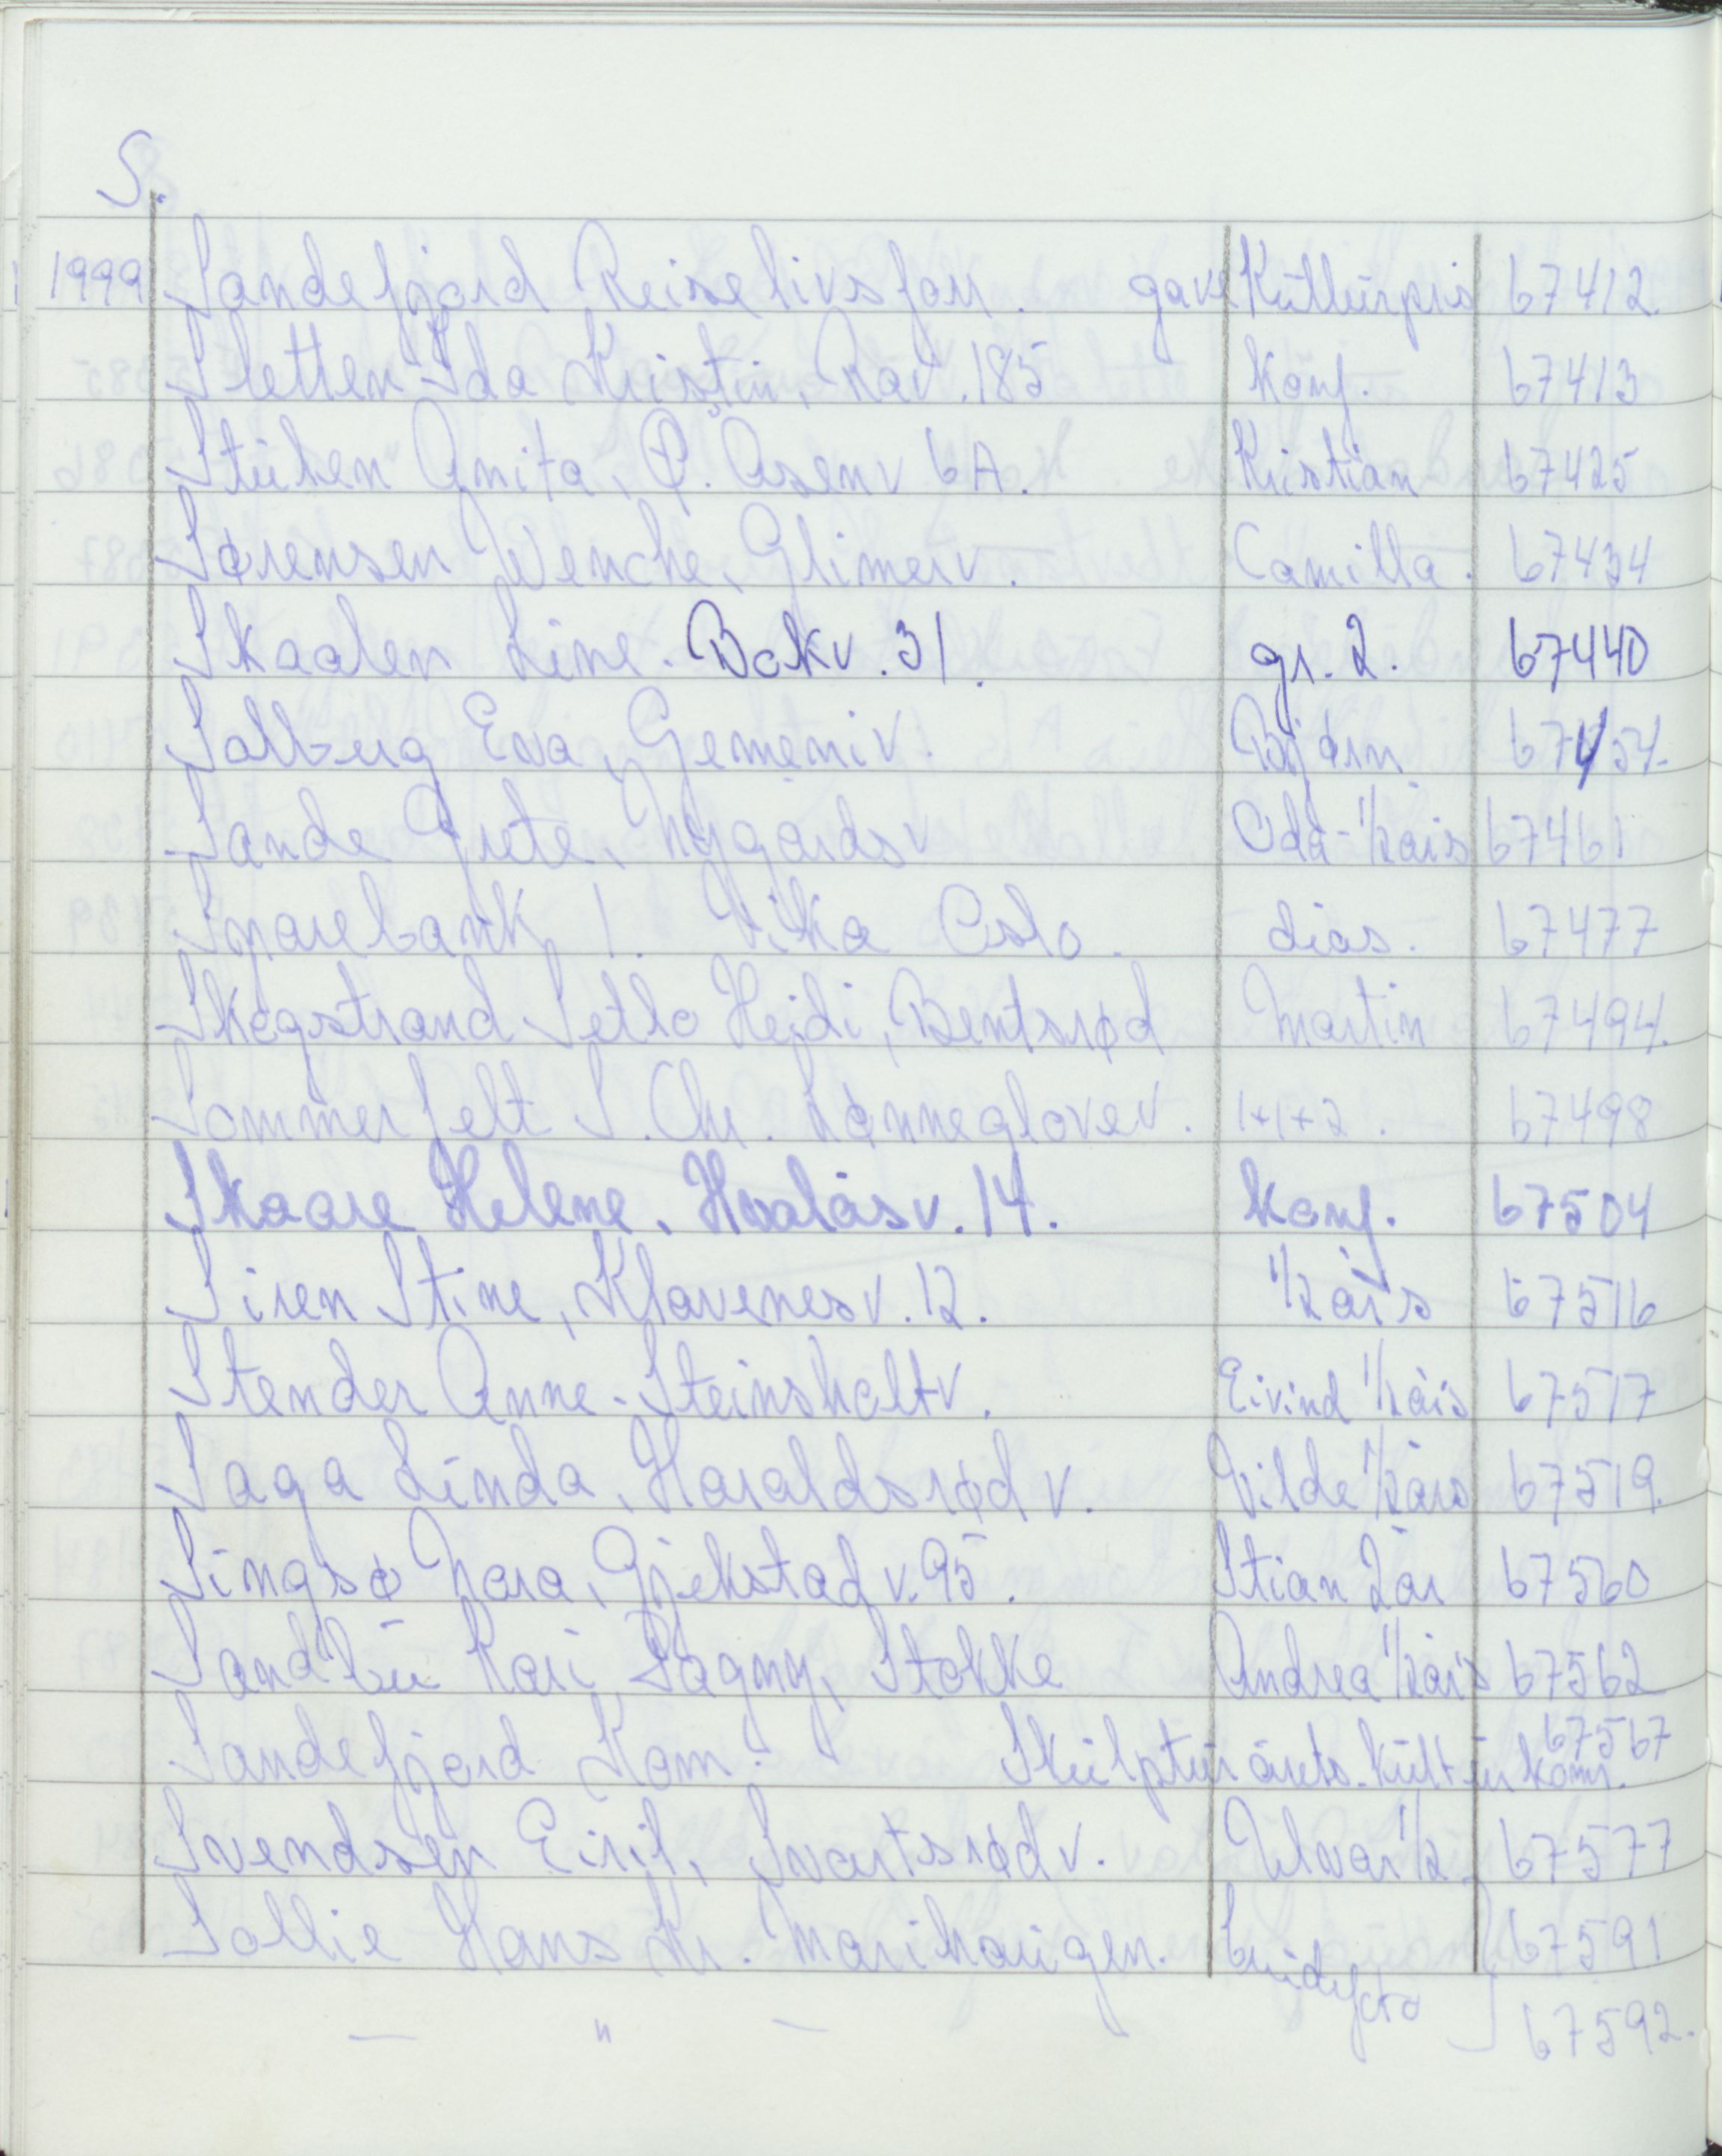 S.
1999 Sandefjord Reiselivsforr. gave Kulturpris 67412.
Sletten Ida Kristin, Rav. 185 konf. 67413
Stühen Anita, P. Åsenv 6A. Kristian 67425
Sørensen Wenche, Glimerv. Camilla. 67434
Skaalen Line. Bokv. 31. gr. 2. 67440
Solberg Eva, Gemeniv. Bjørn 67454.
Sande Grete, Nygårdsv Oda - 1/2 års 67461
Sparebank 1. Vika Oslo. dias. 67477
Skogstrand Setlo Heidi, Bentsrød Martin 67494.
Sommerfelt S. Chr. Lønneglovev. 1+1+2. 67498
Skaare Helene, Hvalåsv. 14. konf. 67504
Siren Stine, Klavenesv. 12. 1/2 års 67516
Stender Anne - Steinsholtv. Eivind 1/2 års 67517
Saga Linda, Haraldsrød v. Vilde 1/2 års 67519.
Singsø Nara, Gjekstad v. 95. Stian 2 år 67560
Sandbu Kari Dagny, Stokke Andrea 1/2 års 67562
Sandefjord Kom. Skulptur årets kultur komm. 67567
Svendsen Eirif, Svartsrød v. 1/2 67577
Sollie Hans Kr. Marihaugen. brudefoto 67591
— " — 67592.